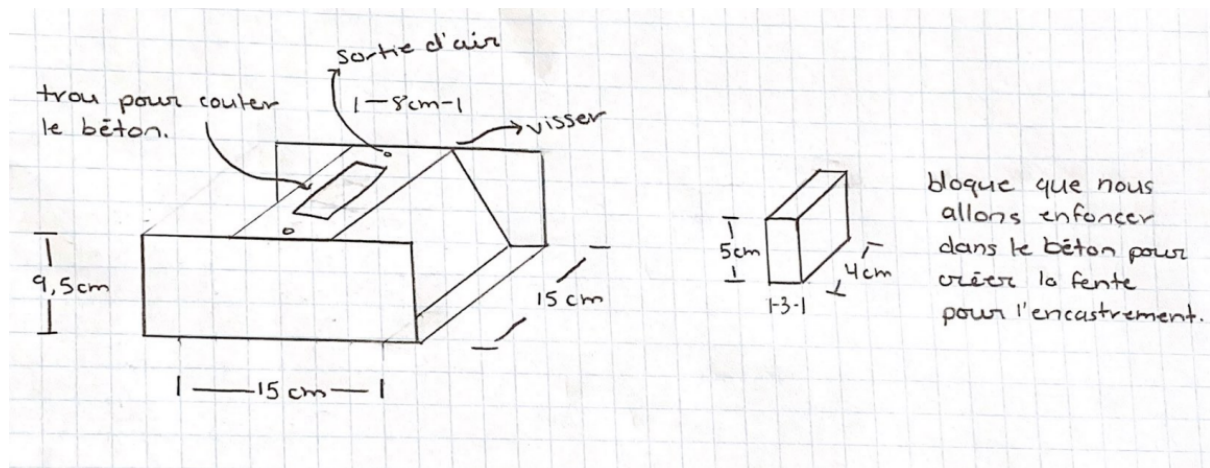 sortie d'air
trou pour couler
le béton.
1-8cm-1
visser
9,5cm
15 cm
1—15 cm—1
5cm
4cm
1-3-1
bloque que nous
allons enfoncer
dans le béton pour
créer la fente
pour l'encastrement.